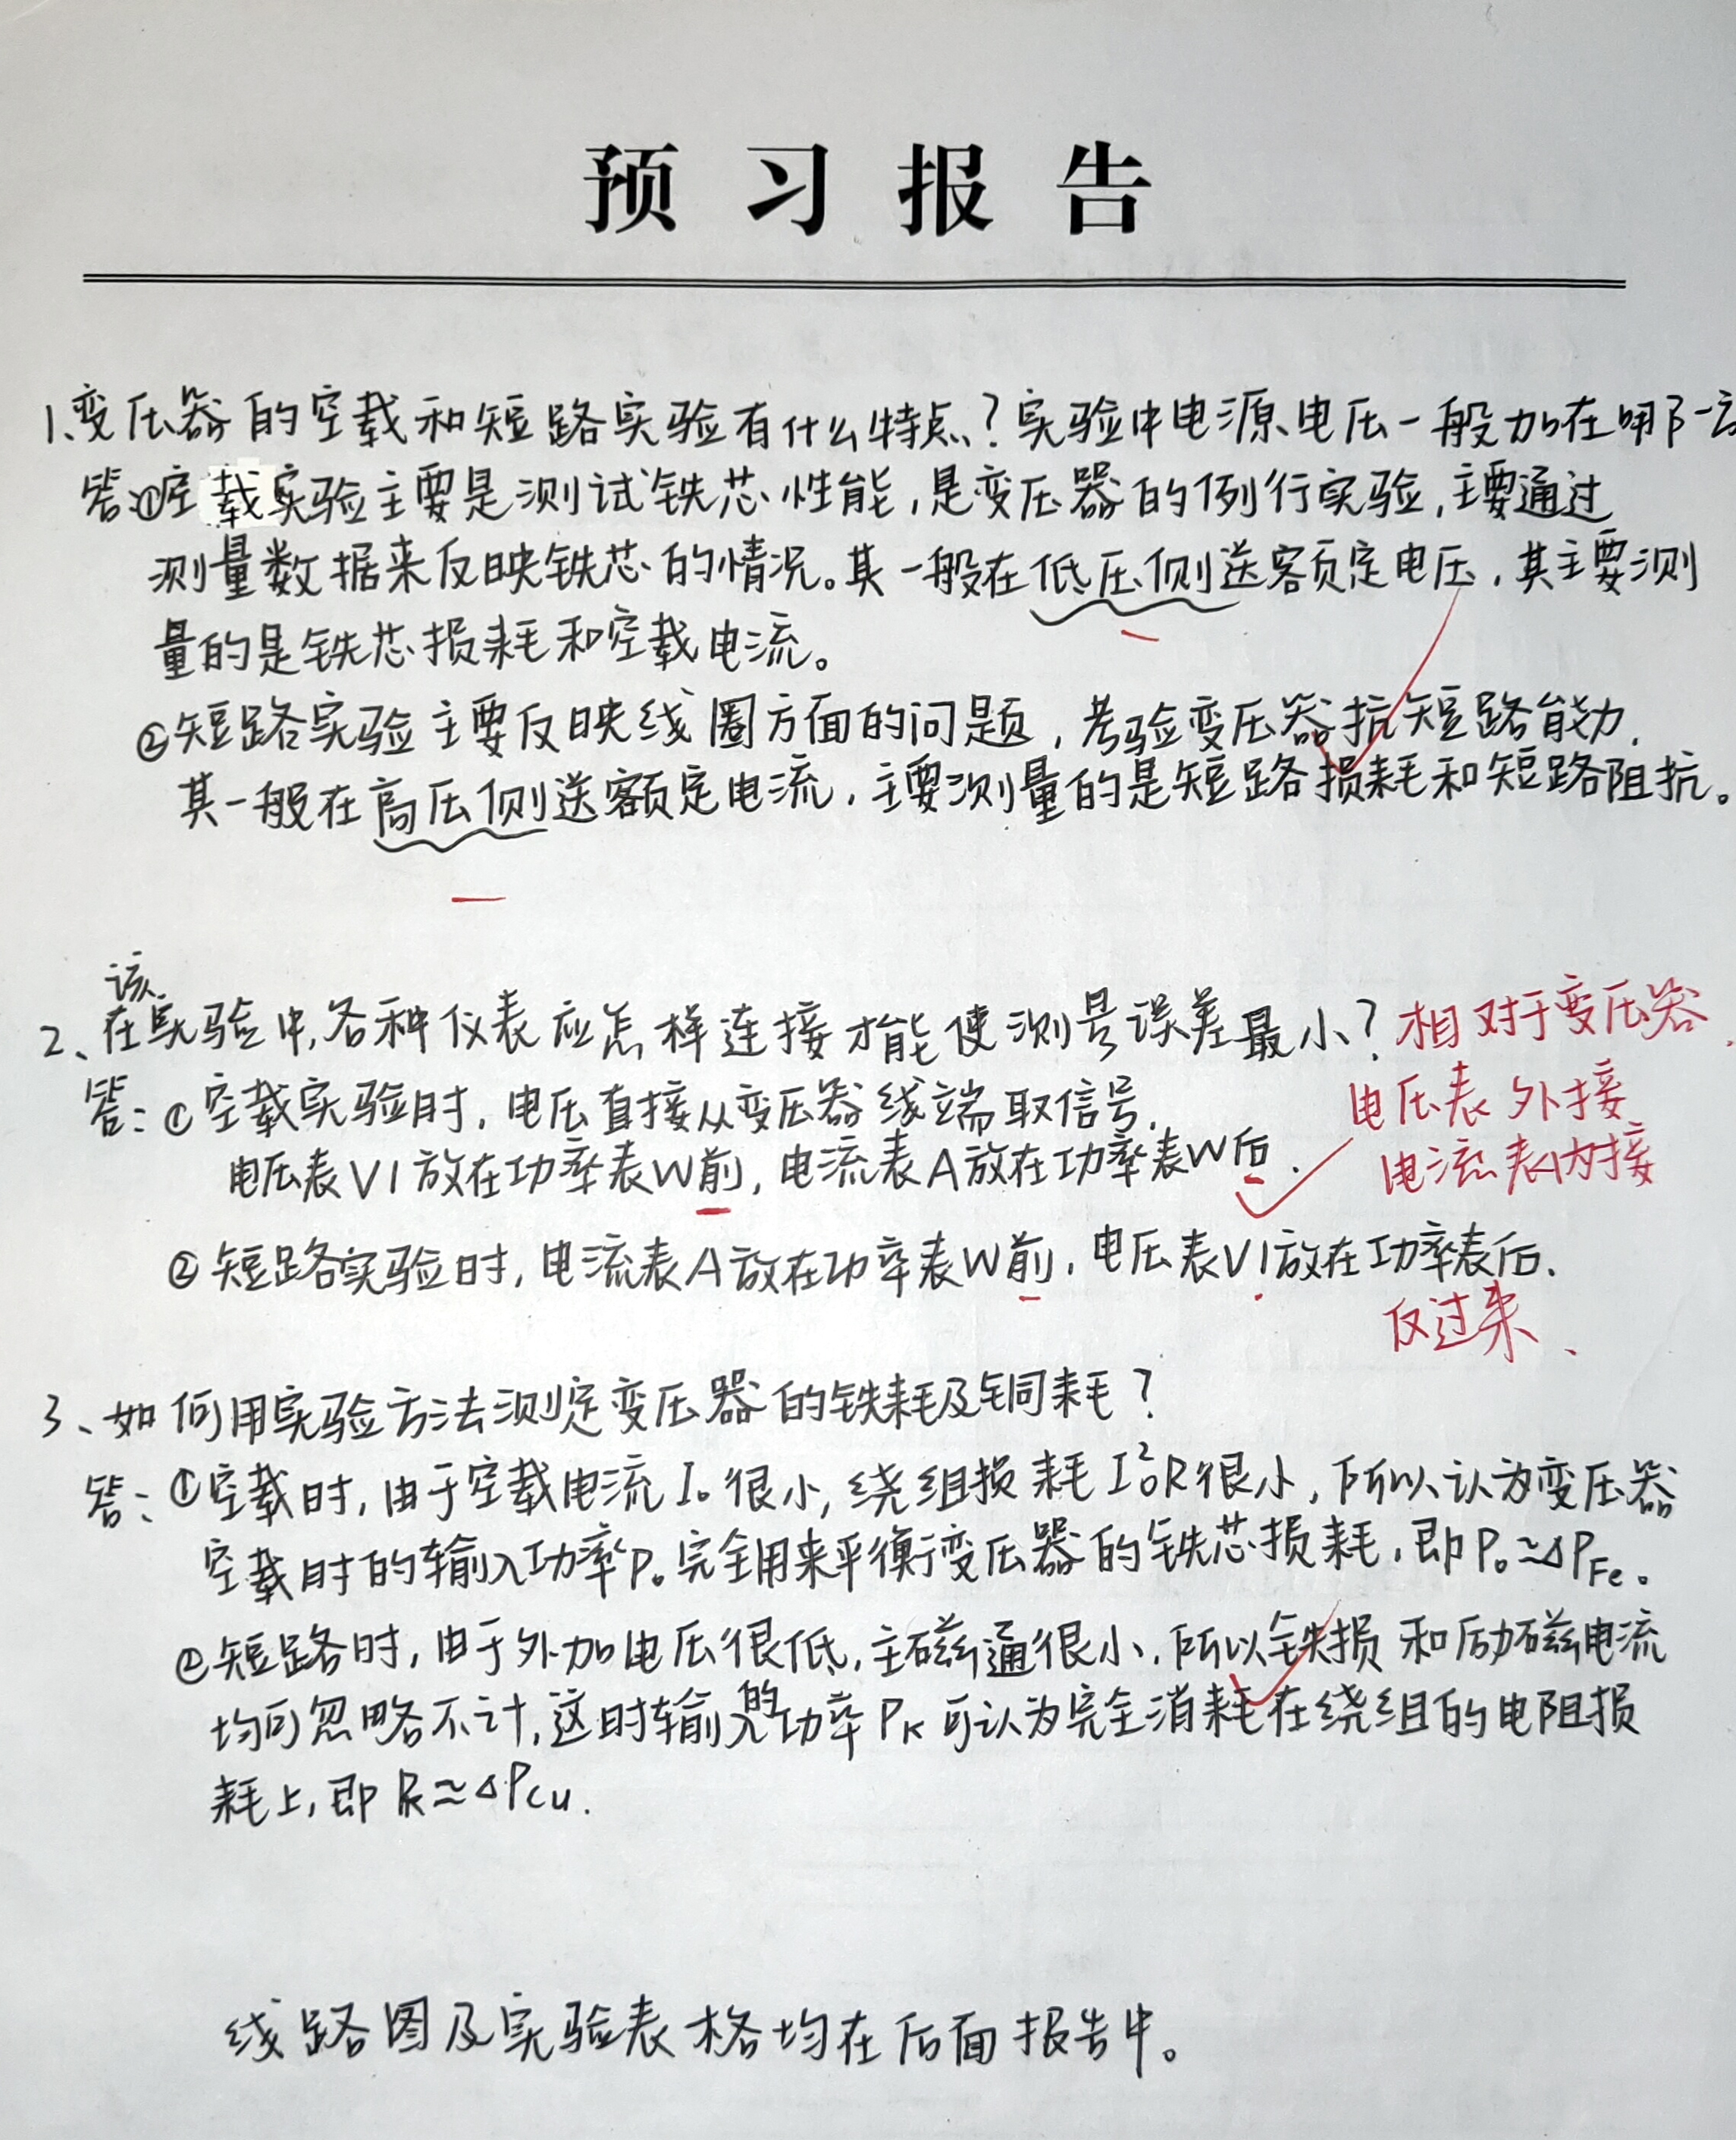 预习报告
1、变压器的空载和短路实验有什么特点？实验中电源电压一般加在哪一方
答：①空载实验主要是测试铁芯性能，是变压器的例行实验，主要通过
测量数据来反映铁芯的情况。其一般在低压侧送额定电压，其主要测
量的是铁芯损耗和空载电流。
②短路实验主要反映线圈方面的问题，考验变压器抗短路能力，
其一般在高压侧送额定电流，主要测量的是短路损耗和短路阻抗。
该
2、在实验中，各种仪表应怎样连接才能使测量误差最小？相对于变压器
答：①空载实验时，电压直接从变压器线端取信号， 电压表外接
电压表V1放在功率表W前，电流表A放在功率表W后． 电流表内接
②短路实验时，电流表A放在功率表W前，电压表V1放在功率表后．
反过来、
3、如何用实验方法测定变压器的铁耗及铜耗？
答：①空载时，由于空载电流I₀很小，绕组损耗I₀²R很小，所以认为变压器
空载时的输入功率P₀完全用来平衡变压器的铁芯损耗，即P₀≈△P_Fe。
②短路时，由于外加电压很低，主磁通很小，所以铁损和励磁电流
均可忽略不计，这时输入的功率P_K可认为完全消耗在绕组的电阻损
耗上，即P_K≈△P_Cu．
线路图及实验表格均在后面报告中。